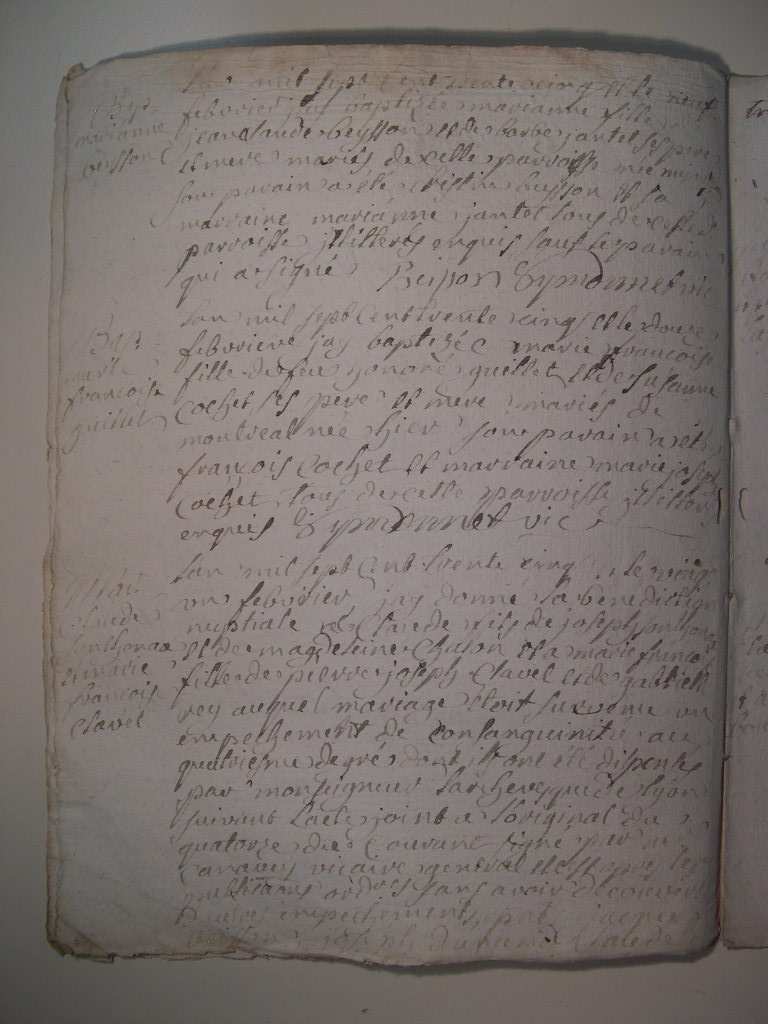 Bap.
marianne
beysson
lan mil sept Cent trente cinq et le neuf
febvrier jay baptizée marianne fille de
jean claude beysson et de barbe jantet ses pere
et mere mariés de cette parroisse née
son parain a été Christin beysson et sa
marraine marianne jantet tous de cette
parroisse jllitterés enquis sauf le parain
qui a signé Beisson Symonnet vic
Bap.
marie
francoise
guillet
lan mil sept Cent trente cinq et le douze
febvrier jay baptizée marie francoise
fille de feu honoré guillet et de susanne
Cochet ses pere et mere mariés de
montreal née hier son parain a été
françois Cochet et marraine marie joseph
Cochet tous de cette parroisse jllitterés
enquis Symonnet vic
Mar.
claude
sonthonax
et marie
francoise
clavel
lan mil sept Cent trente cinq et le vingt
un febvrier jay donné la bénédiction
nuptiale a Claude fils de joseph sonthonax
et de magdeleine Chaton et a marie francoise
fille de pierre joseph Clavel et de gabrielle
rey auquel mariage etoit survenu un
empechement de consanguinité au
quatrieme degré dont ils ont été dispensés
par monseigneur larchevesque de lyon
suivant lacte joint a loriginal du
quatorze du Courant signé par
vicaire general et apres les
publications ord.res sans avoir decouvert
dautres empechement
joseph Claude